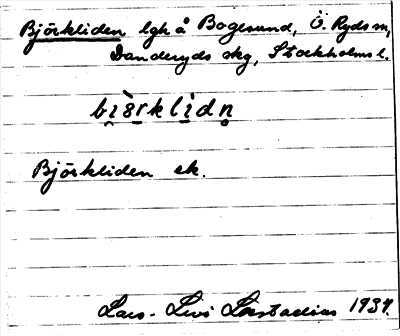 Björkliden lgh å Bogesund, Ö. Ryds sn,
Danderyds skg, Stockholms l.
Björkliden ek.
Lars-Levi Læstadius 1937.